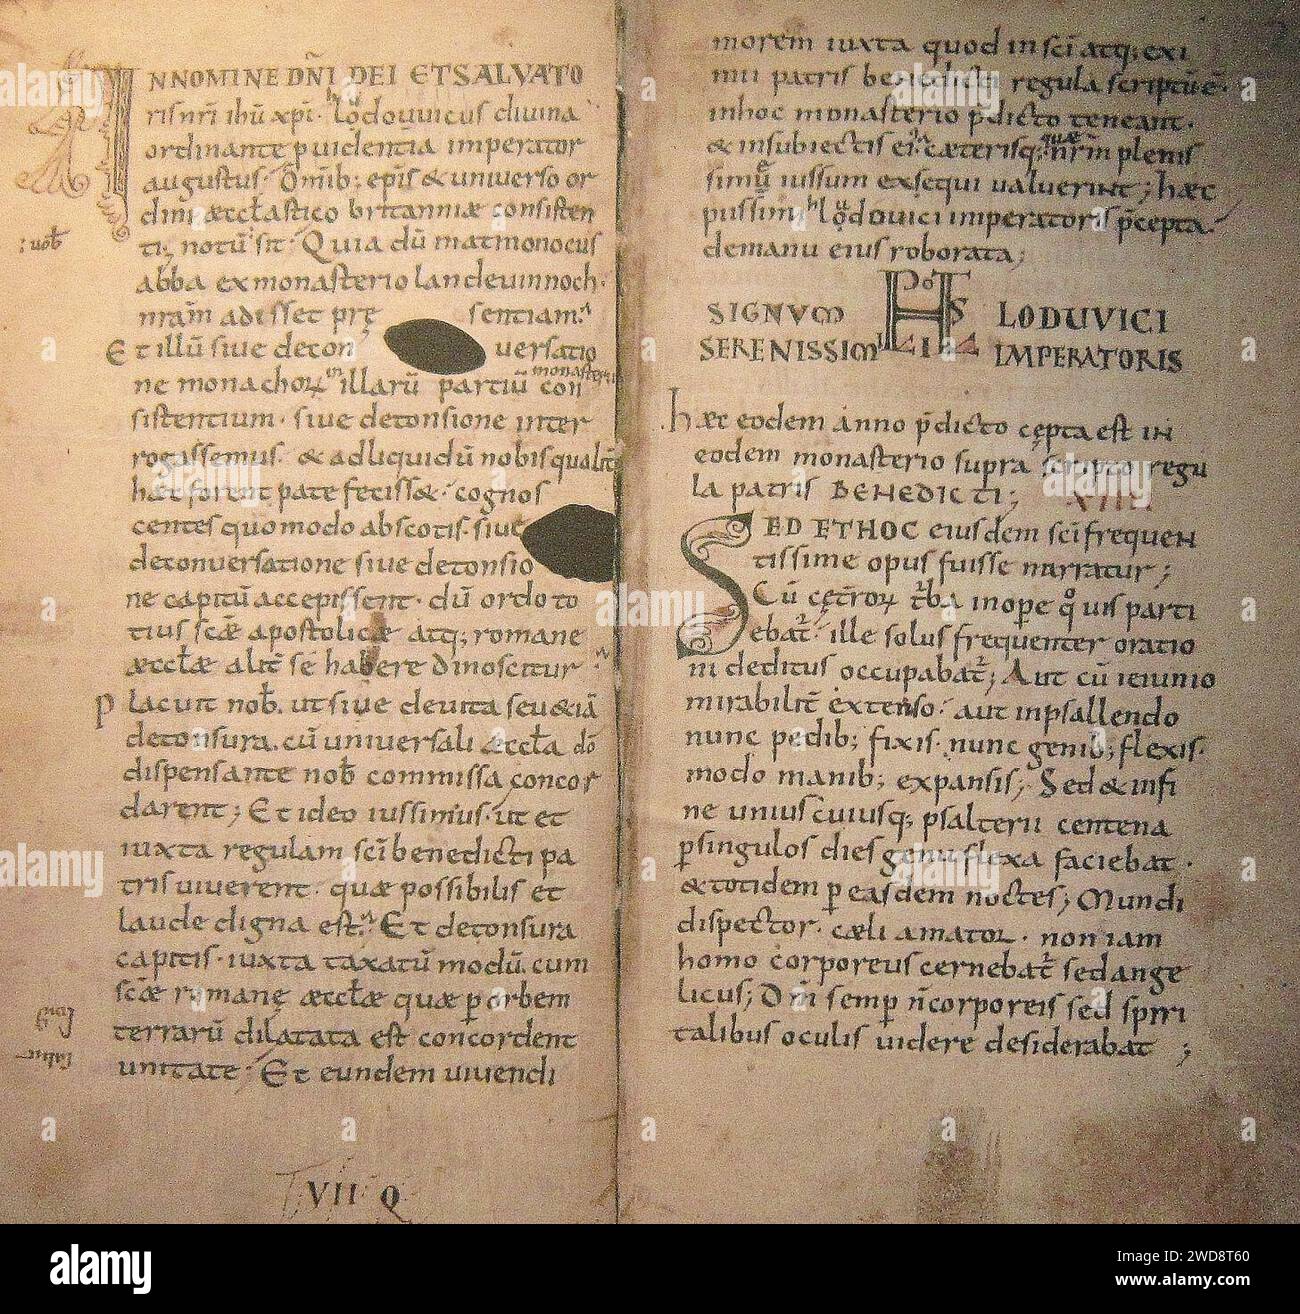 IN NOMINE DÑI DEI ET SALVATO
ris nr̄i ihū xp̄i · hLodouuicus diuina
ordinante puidentia imperator
augustus · Om̄ib; ep̄is & uniuerso or
dini æccl̄astico britanniæ consisten
ti; notū sit · Quia dū matmonocus
abba ex monasterio landeuinnoch ·
nr̄am adisset prę sentiam ·
Et illū siue de con uersatio
ne monachoꝝ illarū partiū con
monasterii
sistentium · siue de tonsione inter
rogassemus · & ad liquidū nobis qualit̄
hæc forent patefecisset · cognos
centes quomodo ab scotis · siue
de conuersatione siue de tonsio
ne capitū accepissent · dū ordo to
tius scæ apostolicæ atq; romane
æccl̄æ alit̄ se habere dinoscitur
Placuit nob̄ · ut siue de uita seu &iā
de tonsura · cū uniuersali æccl̄a dō
dispensante nob̄ commissa concor
darent; Et ideo iussimus · ut et
iuxta regulam sc̄i benedicti pa
tris uiuerent · quæ possibilis et
laude digna est · Et de tonsura
capitis · iuxta taxatū modū cum
scæ romanę æccl̄æ quæ p orbem
terrarū dilatata est concordent
unitate · Et eundem uiuendi
VII Q
morem iuxta quod in sc̄i atq; exi
mii patris benedicti regula scriptū ē ·
in hoc monasterio p̄dicto teneant ·
& in subiectis ei · cæterisq; nr̄m plenis
simū iussum exsequi ualuerint; hæc
piissimi hLodouici imperatoris p̄cepta ·
de manu eius roborata;
SIGNVM LODUVICI
SERENISSIMI IMPERATORIS
hæc eodem anno p̄dicto cępta est in
eodem monasterio supra scripto regu
la patris BENEDICTI;
SED ET HOC eiusdem sc̄i frequen
tissime opus fuisse narratur;
Cū cęt̄roꝝ t̄ba inope q̊ uis parti
ebat̄ · ille solus frequenter oratio
ni deditus occupabat̄; Aut cū ieiunio
mirabilit̄ extenso · aut in psallendo
nunc pedib; fixis · nunc genib; flexis ·
modo manib; expansis; Sed & in fi
ne unius cuiusq; psalterii centena
p singulos dies genuflexa faciebat ·
& totidem p easdem noctes; Mundi
dispector · cæli amator · non iam
homo corporeus cernebat̄ sed ange
licus; Dn̄m semp n̄ corporeis sed spiri
talibus oculis uidere desiderabat;
alamy
Image ID: 2WD8T60
www.alamy.com